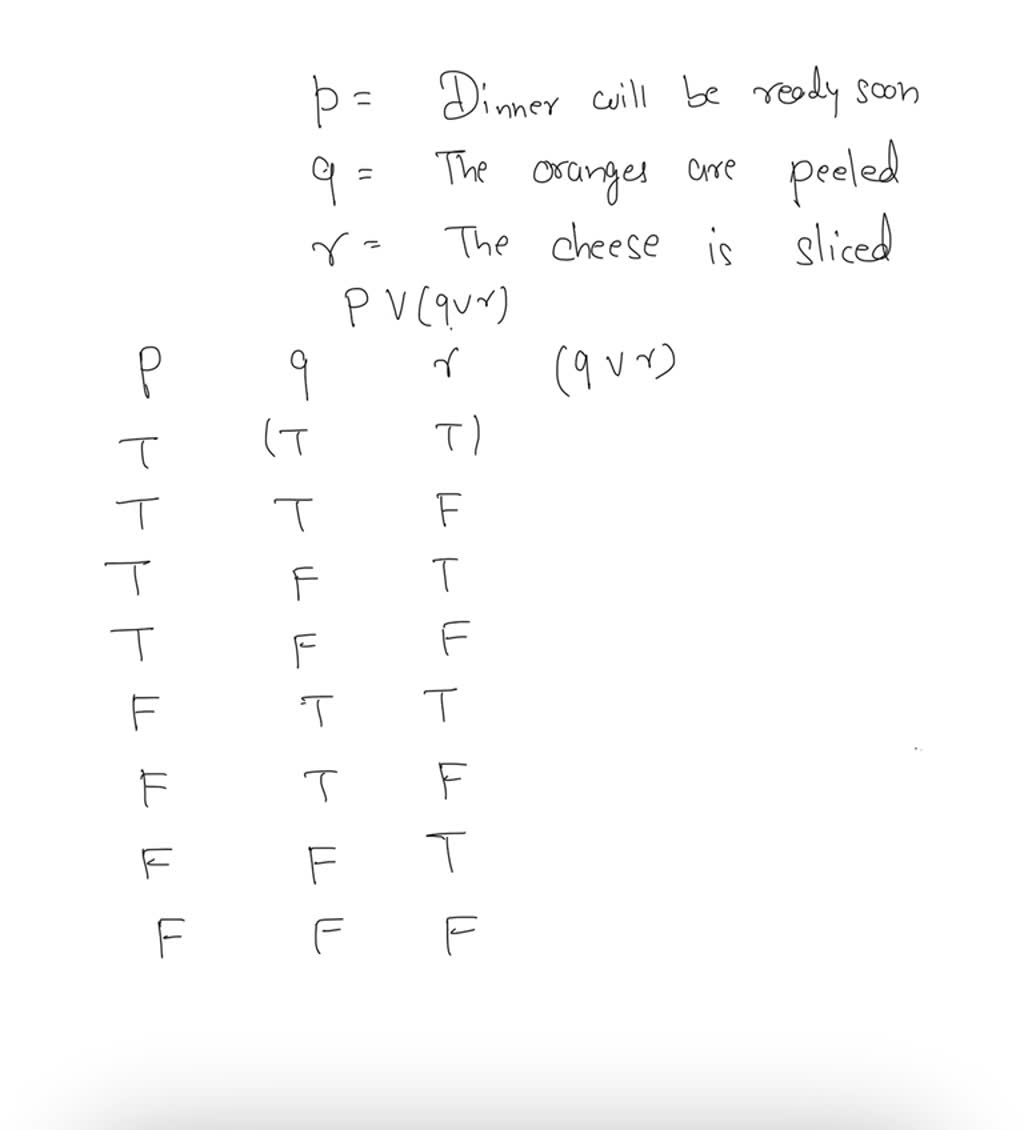 p = Dinner will be ready soon
q = The oranges are peeled
r = The cheese is sliced
P V (q v r)
P q r (q v r)
T (T T)
T T F
T F T
T F F
F T T
F T F
F F T
F F F